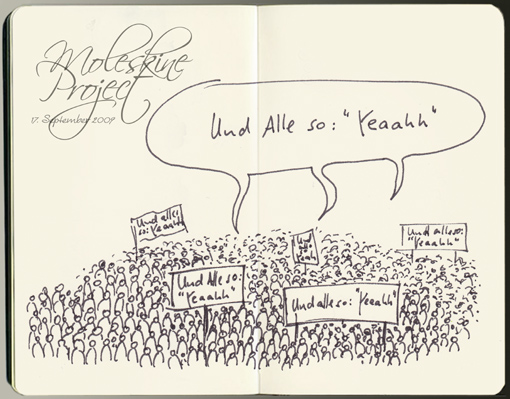 Moleskine
Project
17. September 2009
Und Alle so: "Yeaahh"
Und alle so:
"Yeaahh"
Und
alle
so:
Yeah
Und alle so:
"Yeaahh"
Und Alle so:
"Yeaahh"
Und alle so: "Yeaahh"